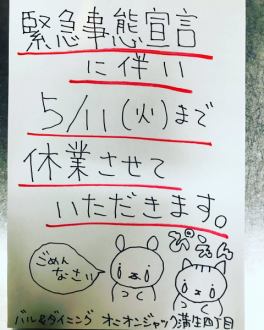 緊急事態宣言
に伴い
5/11(火)まで
休業させて
いただきます。
ぴえん
ごめん
なさい
バル&ダイニング オニオンジャック蒲生四丁目